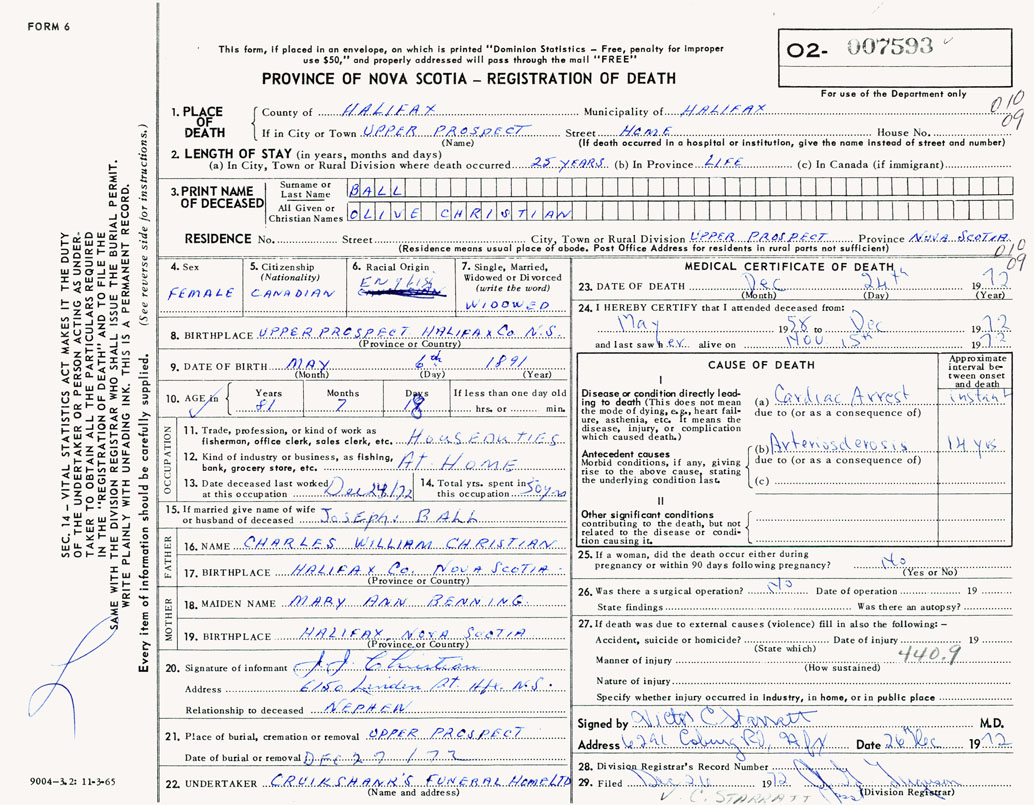 FORM 6
This form, if placed in an envelope, on which is printed "Dominion Statistics – Free, penalty for improper
use $50," and properly addressed will pass through the mail "FREE"
PROVINCE OF NOVA SCOTIA – REGISTRATION OF DEATH
02- 007593
For use of the Department only
010
09
1. PLACE OF DEATH
County of HALIFAX Municipality of HALIFAX
If in City or Town UPPER PROSPECT Street HOME House No.
(Name) (If death occurred in a hospital or institution, give the name instead of street and number)
2. LENGTH OF STAY (in years, months and days)
(a) In City, Town or Rural Division where death occurred 25 YEARS (b) In Province LIFE (c) In Canada (if immigrant)
3. PRINT NAME OF DECEASED
Surname or Last Name BALL
All Given or Christian Names OLIVE CHRISTIAN
RESIDENCE No. Street City, Town or Rural Division UPPER PROSPECT Province NOVA SCOTIA
(Residence means usual place of abode. Post Office Address for residents in rural parts not sufficient)
010
09
4. Sex
FEMALE
5. Citizenship
(Nationality)
CANADIAN
6. Racial Origin
ENGLISH
7. Single, Married,
Widowed or Divorced
(write the word)
WIDOWED
8. BIRTHPLACE UPPER PROSPECT HALIFAX Co. N.S.
(Province or Country)
9. DATE OF BIRTH MAY 6th 1891
(Month) (Day) (Year)
10. AGE in
Years Months Days If less than one day old
81 7 18 hrs. or min.
OCCUPATION
11. Trade, profession, or kind of work as
fisherman, office clerk, sales clerk, etc. HOUSEDUTIES
12. Kind of industry or business, as fishing,
bank, grocery store, etc. AT HOME
13. Date deceased last worked
at this occupation Dec 24/72
14. Total yrs. spent in
this occupation 50 yrs
15. If married give name of wife
or husband of deceased JOSEPH BALL
FATHER
16. NAME CHARLES WILLIAM CHRISTIAN
17. BIRTHPLACE HALIFAX Co. NOVA SCOTIA
(Province or Country)
MOTHER
18. MAIDEN NAME MARY ANN BENNING
19. BIRTHPLACE HALIFAX, NOVA SCOTIA
(Province or Country)
20. Signature of informant J. J. Christian
Address 6150 Linden St. Hfx. N.S.
Relationship to deceased NEPHEW
21. Place of burial, cremation or removal UPPER PROSPECT
Date of burial or removal DEC 27/72
22. UNDERTAKER CRUIKSHANK'S FUNERAL HOME LTD
(Name and address)
MEDICAL CERTIFICATE OF DEATH
23. DATE OF DEATH Dec 24th 1972
(Month) (Day) (Year)
24. I HEREBY CERTIFY that I attended deceased from:
May 1958 to Dec 1972
and last saw her alive on Nov. 15th 1972
CAUSE OF DEATH
Approximate
interval be-
tween onset
and death
I
Disease or condition directly lead-
ing to death (This does not mean
the mode of dying, e.g., heart fail-
ure, asthenia, etc. It means the
disease, injury, or complication
which caused death.)
(a) Cardiac Arrest instant
due to (or as a consequence of)
Antecedent causes
Morbid conditions, if any, giving
rise to the above cause, stating
the underlying condition last.
(b) Arteriosclerosis 14 yrs
due to (or as a consequence of)
(c)
II
Other significant conditions
contributing to the death, but not
related to the disease or condi-
tion causing it.
25. If a woman, did the death occur either during
pregnancy or within 90 days following pregnancy? No
(Yes or No)
26. Was there a surgical operation? No Date of operation 19
State findings Was there an autopsy?
27. If death was due to external causes (violence) fill in also the following: –
Accident, suicide or homicide? Date of injury 19
(State which)
440.9
Manner of injury
(How sustained)
Nature of injury
Specify whether injury occurred in industry, in home, or in public place
Signed by Victor C Starratt M.D.
Address 6291 Coburg Rd, Hfx Date 26 Dec 1972
28. Division Registrar's Record Number
29. Filed Dec 26 1972
(Division Registrar)
V. C. STARRATT
SEC. 14 – VITAL STATISTICS ACT MAKES IT THE DUTY
OF THE UNDERTAKER OR PERSON ACTING AS UNDER-
TAKER TO OBTAIN ALL THE PARTICULARS REQUIRED
IN THE "REGISTRATION OF DEATH" AND TO FILE THE
SAME WITH THE DIVISION REGISTRAR WHO SHALL ISSUE THE BURIAL PERMIT.
WRITE PLAINLY WITH UNFADING INK. THIS IS A PERMANENT RECORD.
Every item of information should be carefully supplied. (See reverse side for instructions.)
9004-3.2: 11-3-65